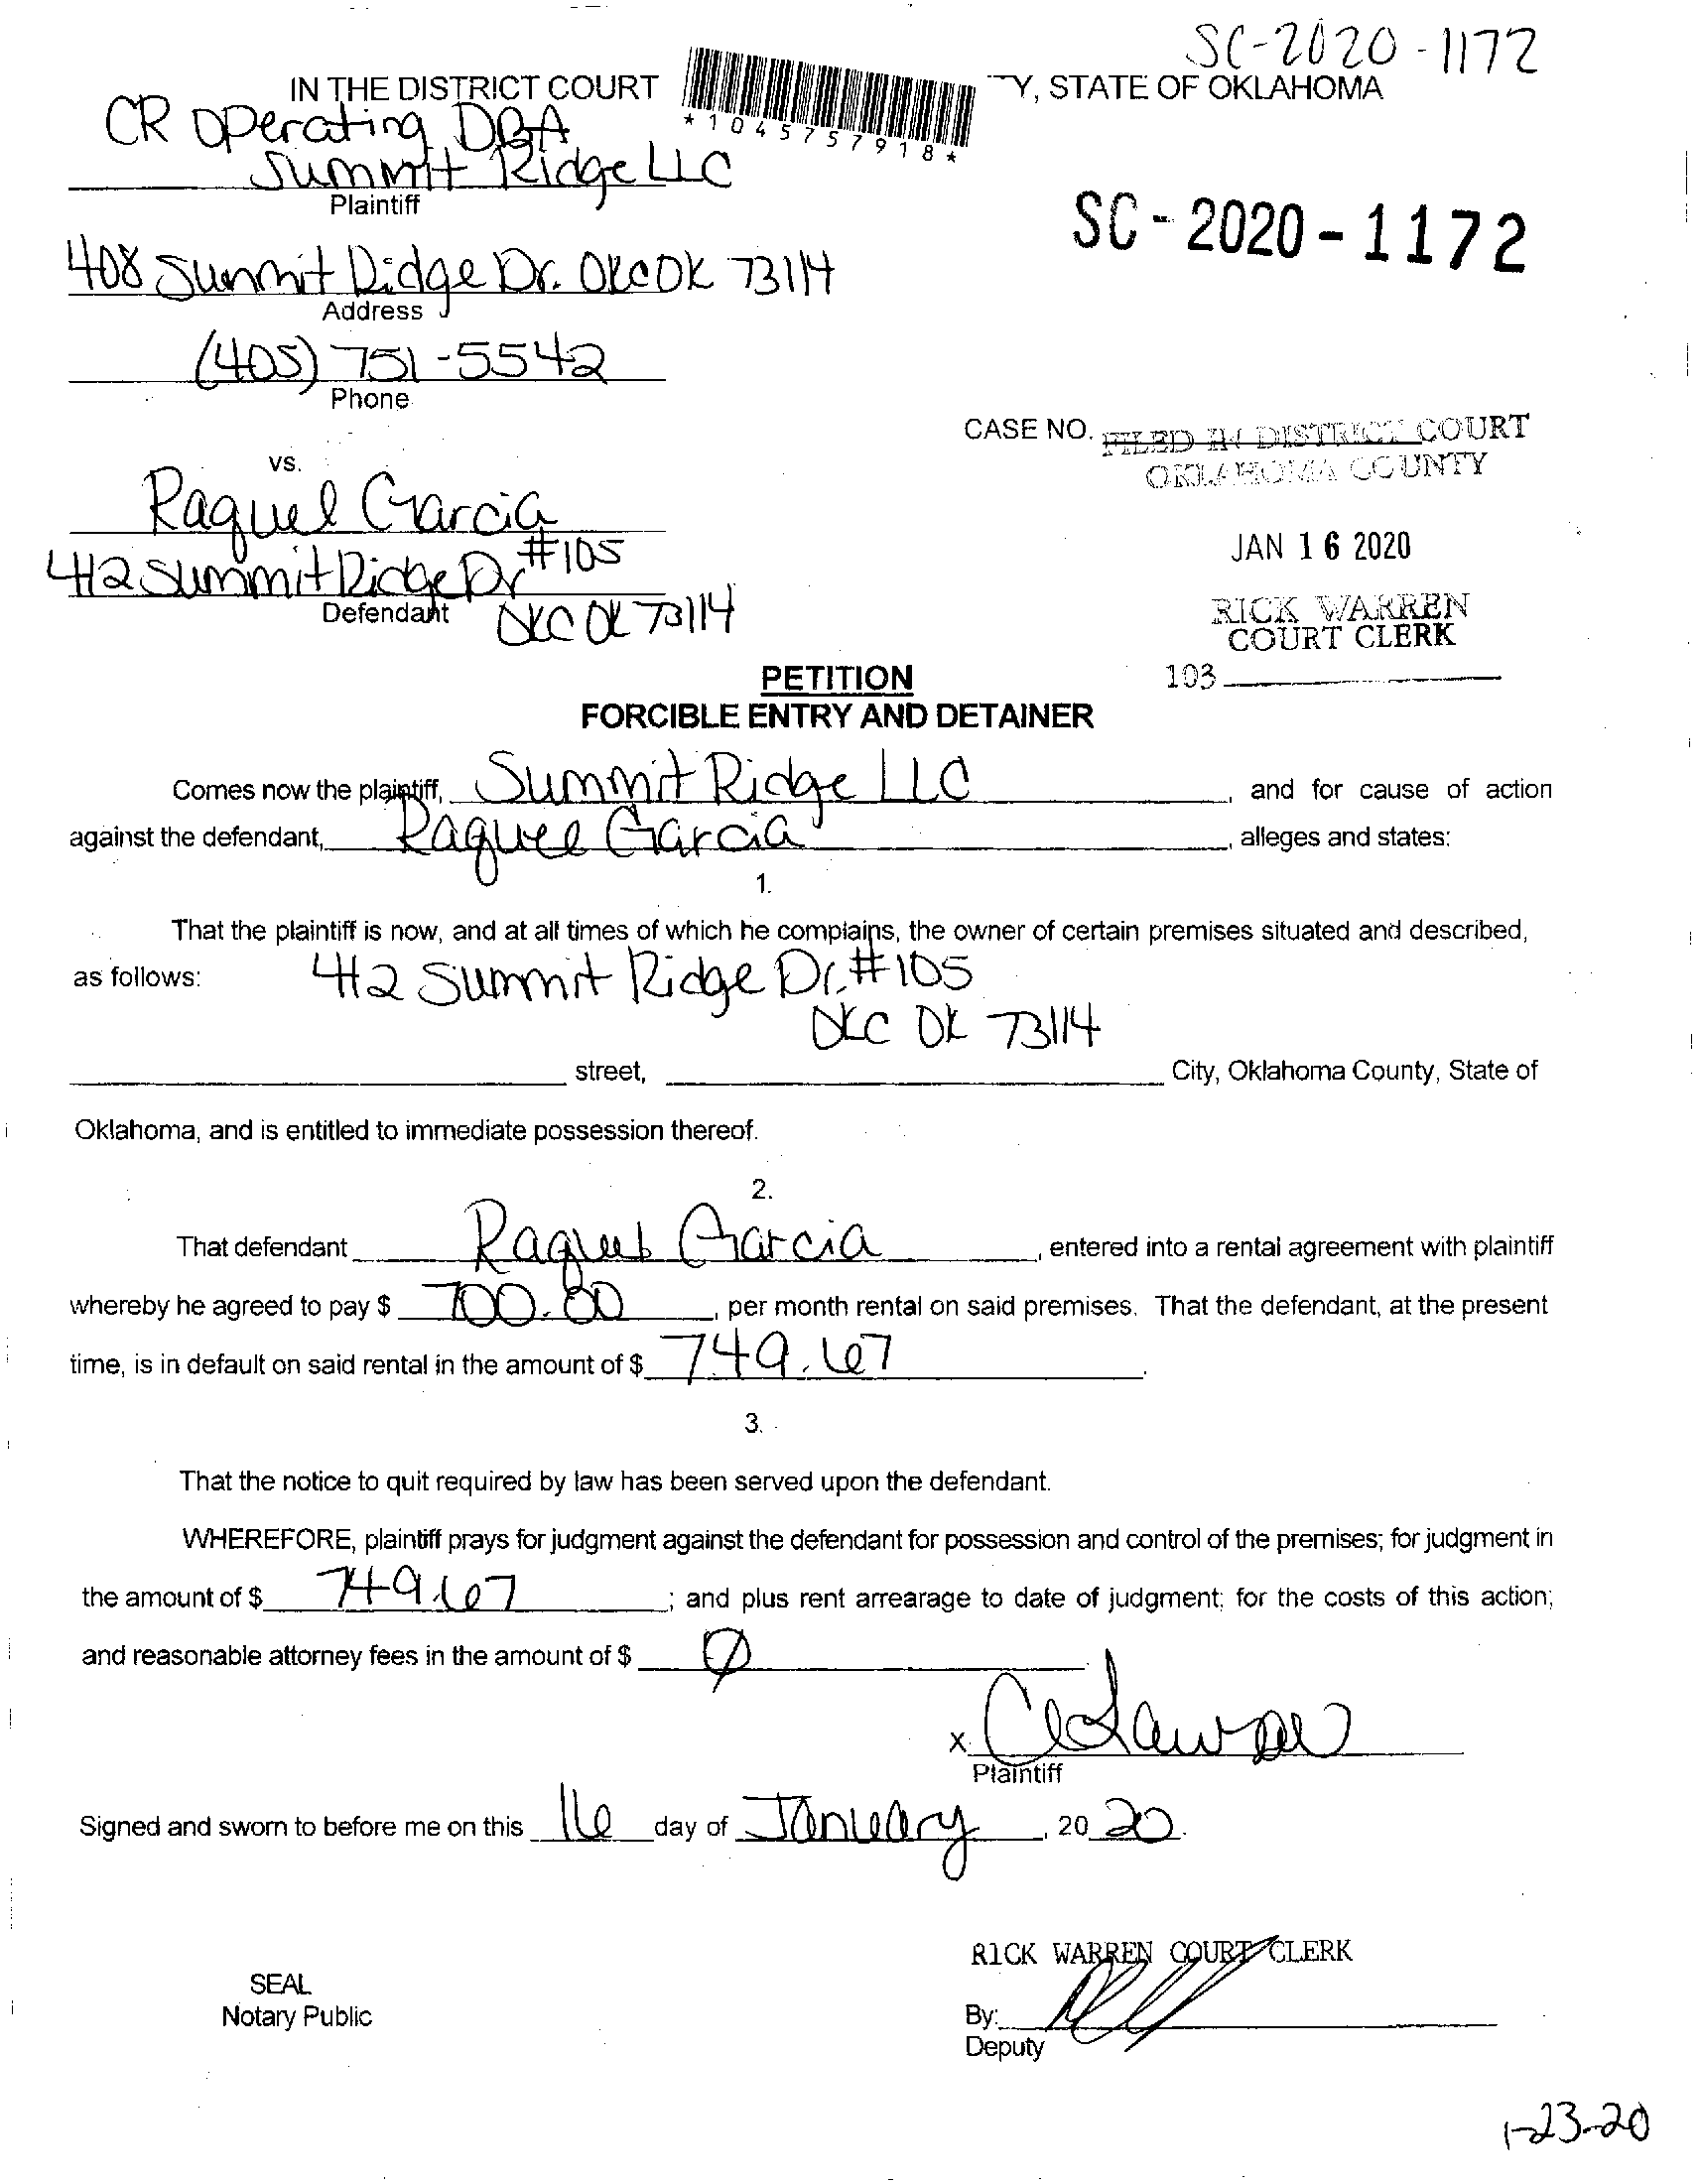 SC-2020-1172
IN THE DISTRICT COURT Y, STATE OF OKLAHOMA
*1045757918*
CR Operating DBA
Summit Ridge LLC
Plaintiff
SC-2020-1172
408 Summit Ridge Dr. OKC OK 73114
Address
(405) 751-5542
Phone
CASE NO.
FILED IN DISTRICT COURT
OKLAHOMA COUNTY
vs.
Raquel Garcia
JAN 16 2020
412 Summit Ridge Dr #105
Defendant OKC OK 73114
RICK WARREN
COURT CLERK
103
PETITION
FORCIBLE ENTRY AND DETAINER
Comes now the plaintiff, Summit Ridge LLC, and for cause of action
against the defendant, Raquel Garcia, alleges and states:
1.
That the plaintiff is now, and at all times of which he complains, the owner of certain premises situated and described,
as follows: 412 Summit Ridge Dr. #105
OKC OK 73114
street, City, Oklahoma County, State of
Oklahoma, and is entitled to immediate possession thereof.
2.
That defendant Raquel Garcia, entered into a rental agreement with plaintiff
whereby he agreed to pay $ 700.00, per month rental on said premises. That the defendant, at the present
time, is in default on said rental in the amount of $ 749.67.
3.
That the notice to quit required by law has been served upon the defendant.
WHEREFORE, plaintiff prays for judgment against the defendant for possession and control of the premises; for judgment in
the amount of $ 749.67; and plus rent arrearage to date of judgment; for the costs of this action;
and reasonable attorney fees in the amount of $ Ø
X
Plaintiff
Signed and sworn to before me on this 16 day of January, 20 20.
RICK WARREN COURT CLERK
SEAL
Notary Public
By:
Deputy
1-23-20